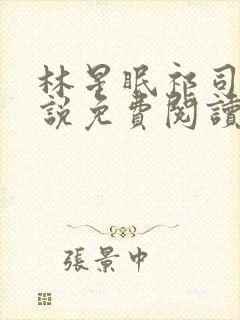 林星眠祁司
說免費閱讀
張景中